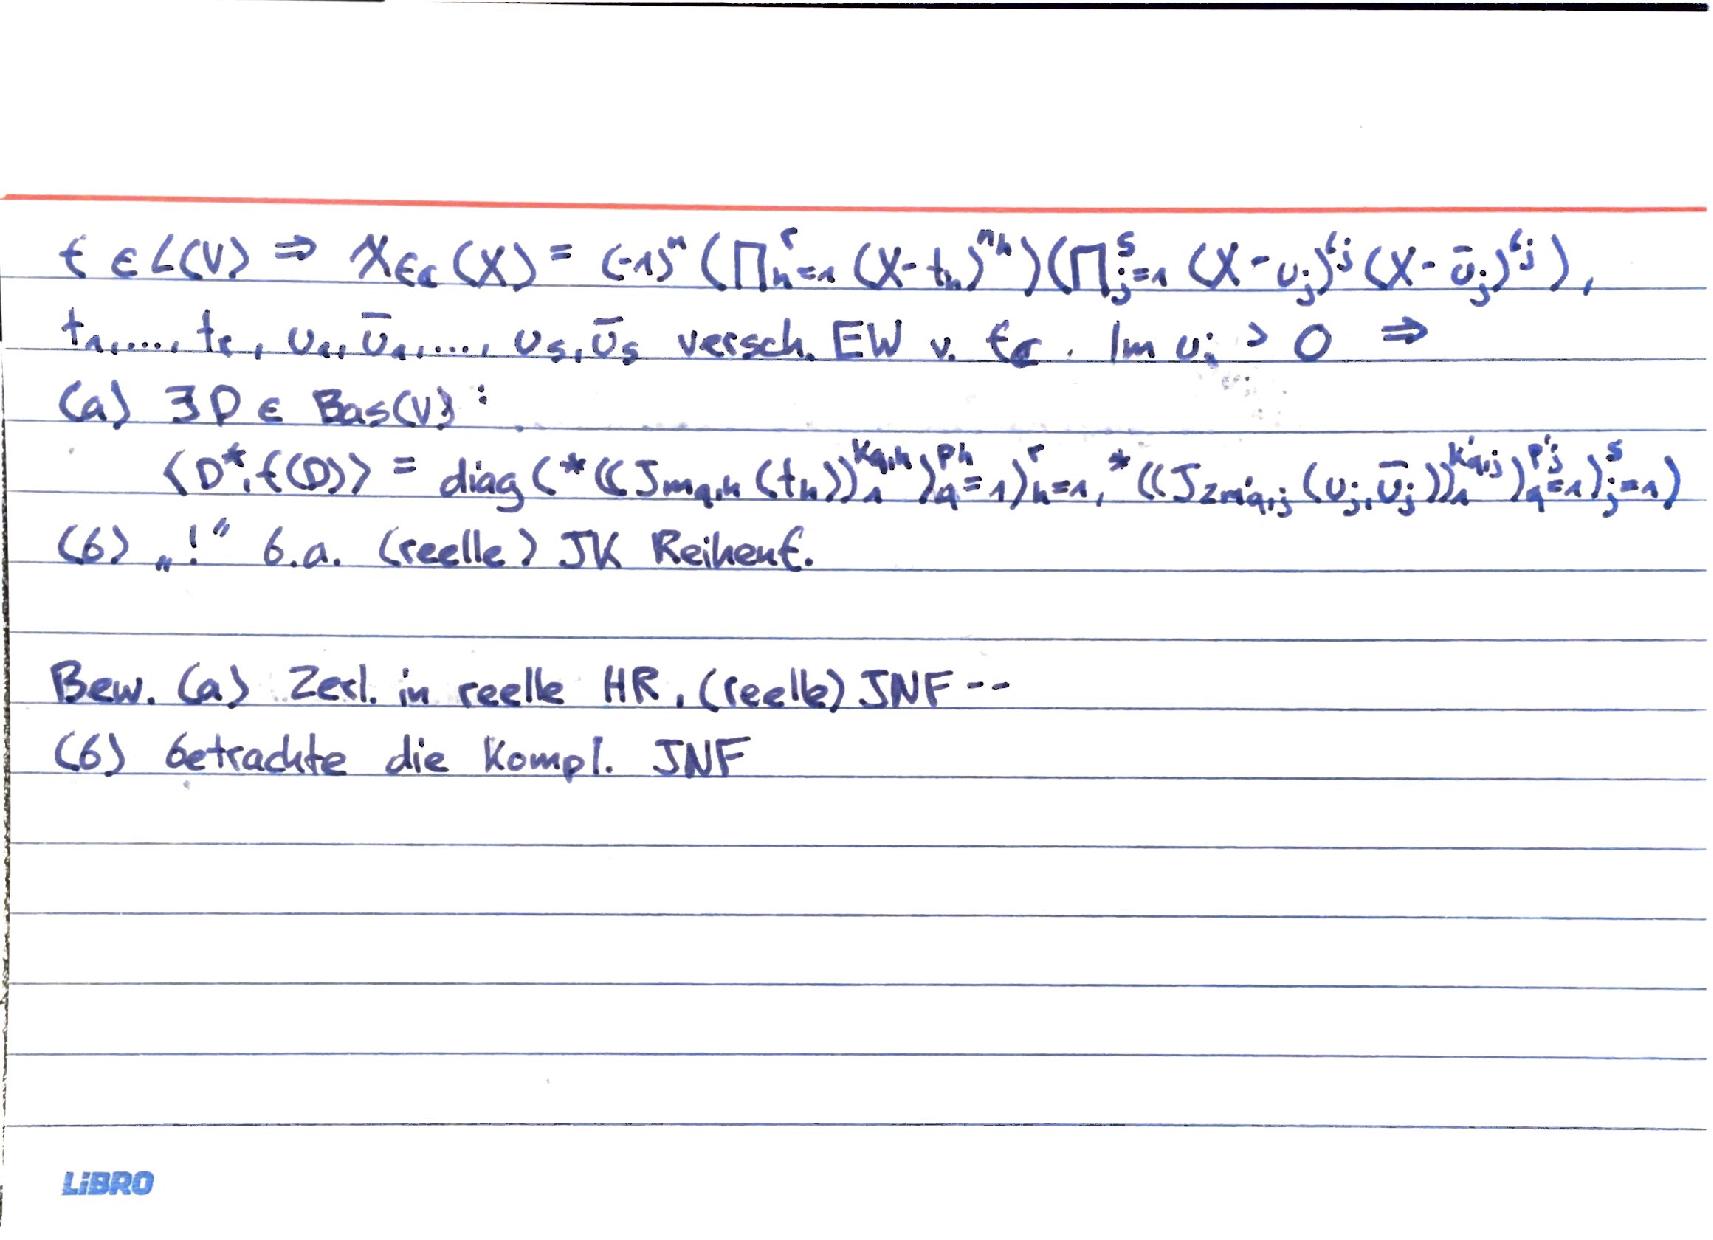 f ∈ L(V) ⇒ χ_{f_ℂ}(X) = (-1)^n (∏_{h=1}^r (X-t_h)^{n_h})(∏_{j=1}^s (X-u_j)^{l_j}(X-ū_j)^{l_j}),
t_1,..., t_r, u_1, ū_1,..., u_s, ū_s versch. EW v. f_ℂ. Im u_j > 0 ⇒
(a) ∃D ∈ Bas(V):
⟨D*, f(D)⟩ = diag(*((J_{m_{q,h}}(t_h))_1^{k_{q,h}})_{q=1}^{p_h})_{h=1}^r, *((J_{2m'_{q,j}}(u_j, ū_j))_1^{k'_{q,j}})_{q=1}^{p'_j})_{j=1}^s)
(b) „!“ b.a. (reelle) JK Reihenf.
Bew. (a) Zerl. in reelle HR, (reelle) JNF --
(b) betrachte die kompl. JNF
LiBRO